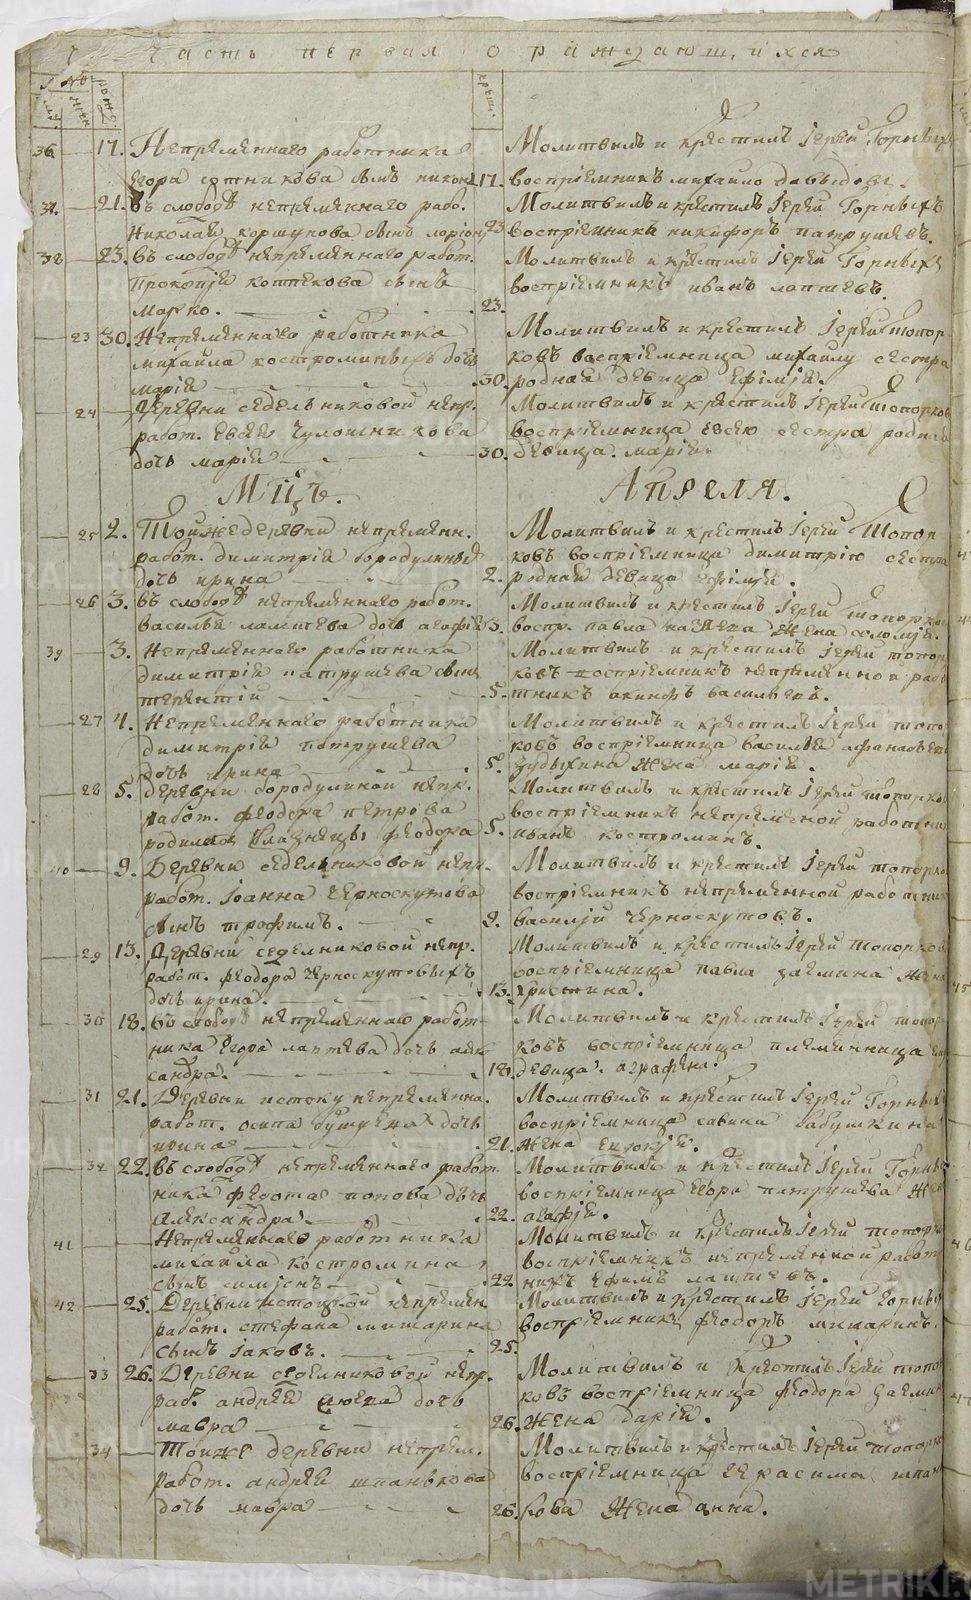 Часть первая о раждающихся
36 17. Непремѣннаго работника
Егора сотникова сынъ никон 17.
Молитвилъ и крестилъ Іерей Горныхъ
воспріемникъ михайло давыдовъ.
37. 21. въ слободѣ непремѣннаго рабо.
Николая коршунова сынъ ларіон 23
Молитвилъ и крестилъ Іерей Горныхъ
воспріемникъ никифоръ патрушевъ.
38 23. въ слободѣ непремѣннаго работ.
Прокопія коттекова сынъ
марко. 23.
Молитвилъ и крестилъ Іерей Горныхъ
воспріемникъ иванъ лаптевъ.
23 30. Непремѣннаго работника
михайла костроминыхъ дочь
марія 30.
Молитвилъ и крестилъ Іерей топор
ковъ воспріемница михаилу сестра
родная девица ефимія.
24 Деревни седельниковой непр.
работ. Евсея Чулошникова
дочь марія 30.
Молитвилъ и крестилъ Іерей топорковъ
воспріемница евсею сестра родная
девица марія.
Мцъ. Апреля.
25 2. Тойже деревни непремѣнн.
работ. димитрія бородулиныхъ
дочь ирина 2.
Молитвилъ и крестилъ Іерей Топор
ковъ воспріемница димитрію сестра
родная девица ефимія.
26 3. въ слободѣ непремѣннаго работ.
василья лаптева дочь агафія 3.
Молитвилъ и крестилъ Іерей топорков
воспр. павла жена соломія.
39 3. Непремѣннаго работника
димитрія патрушева сынъ
терентій 5.
Молитвилъ и крестилъ Іерей топор
ковъ воспріемникъ непремѣнной рабо
тникъ акинфъ васильевъ.
27 4. Непремѣннаго работника
димитрія потрушева
дочь ирина 5.
Молитвилъ и крестилъ Іерей топо
ковъ воспріемница василья афанасьева
Зудихина жена марія.
28 5. деревни бородулиной непр.
работ. феодора петрова
родились близнецы феодора 5.
Молитвилъ и крестилъ Іерей топорко
воспріемникъ непремѣной работни
иванъ костроминъ.
40 9. Деревни седельниковой непр.
работ. Іоанна Черноскутова
сынъ трофимъ. 9.
Молитвилъ и крестилъ Іерей топорко
воспріемникъ непремѣнной работник
василій Черноскутовъ.
29 13. Деревни седелниковой непр.
работ. феодора черноскутовыхъ
дочь ирина. 13.
Молитвилъ и крестилъ Іерей топорков
воспріемница павла заемина жена
христина.
30 18. въ слободѣ непремѣннаго работ
ника Егора лаптева дочь алек
сандра. 18.
Молитвилъ и крестилъ Іерей топор
ковъ воспріемница племянница
девица аграфена.
31 21. Деревни истоку непремѣнна.
работ. осипа бушуева дочь
ирина 21.
Молитвилъ и крестилъ Іерей Горныхъ
воспріемница савина бабушкина
жена евдокія.
32 22. въ слободѣ непремѣннаго работ
ника федота попова дочь
александра 22.
Молитвилъ и крестилъ Іерей Горны
воспріемница Егора патрушева жена
агафія.
41 Непремѣннаго работника
михайла костромина
сынъ симіонъ 22.
Молитвилъ и крестилъ Іерей топорко
воспріемникъ непремѣнной работ
никъ ефимъ лаптевъ.
42 25. Деревни истоцкой непремѣн
работ. стефана мишарина
сынъ Іаковъ. 25.
Молитвилъ и крестилъ Іерей Горных
воспріемникъ феодоръ мишаринъ.
33 26. Деревни седелниковой непр.
раб. андрея дочь
мавра 26.
Молитвилъ и крестилъ Іерей топо
ковъ воспріемница феодора заемин
жена дарія.
34 Тойже деревни непрем.
работ. андрея шпанькова
дочь мавра 26.
Молитвилъ и крестилъ Іерей топорко
воспріемница Герасима шпань
кова жена анна.
METRIKI.GASO-URAL.RU